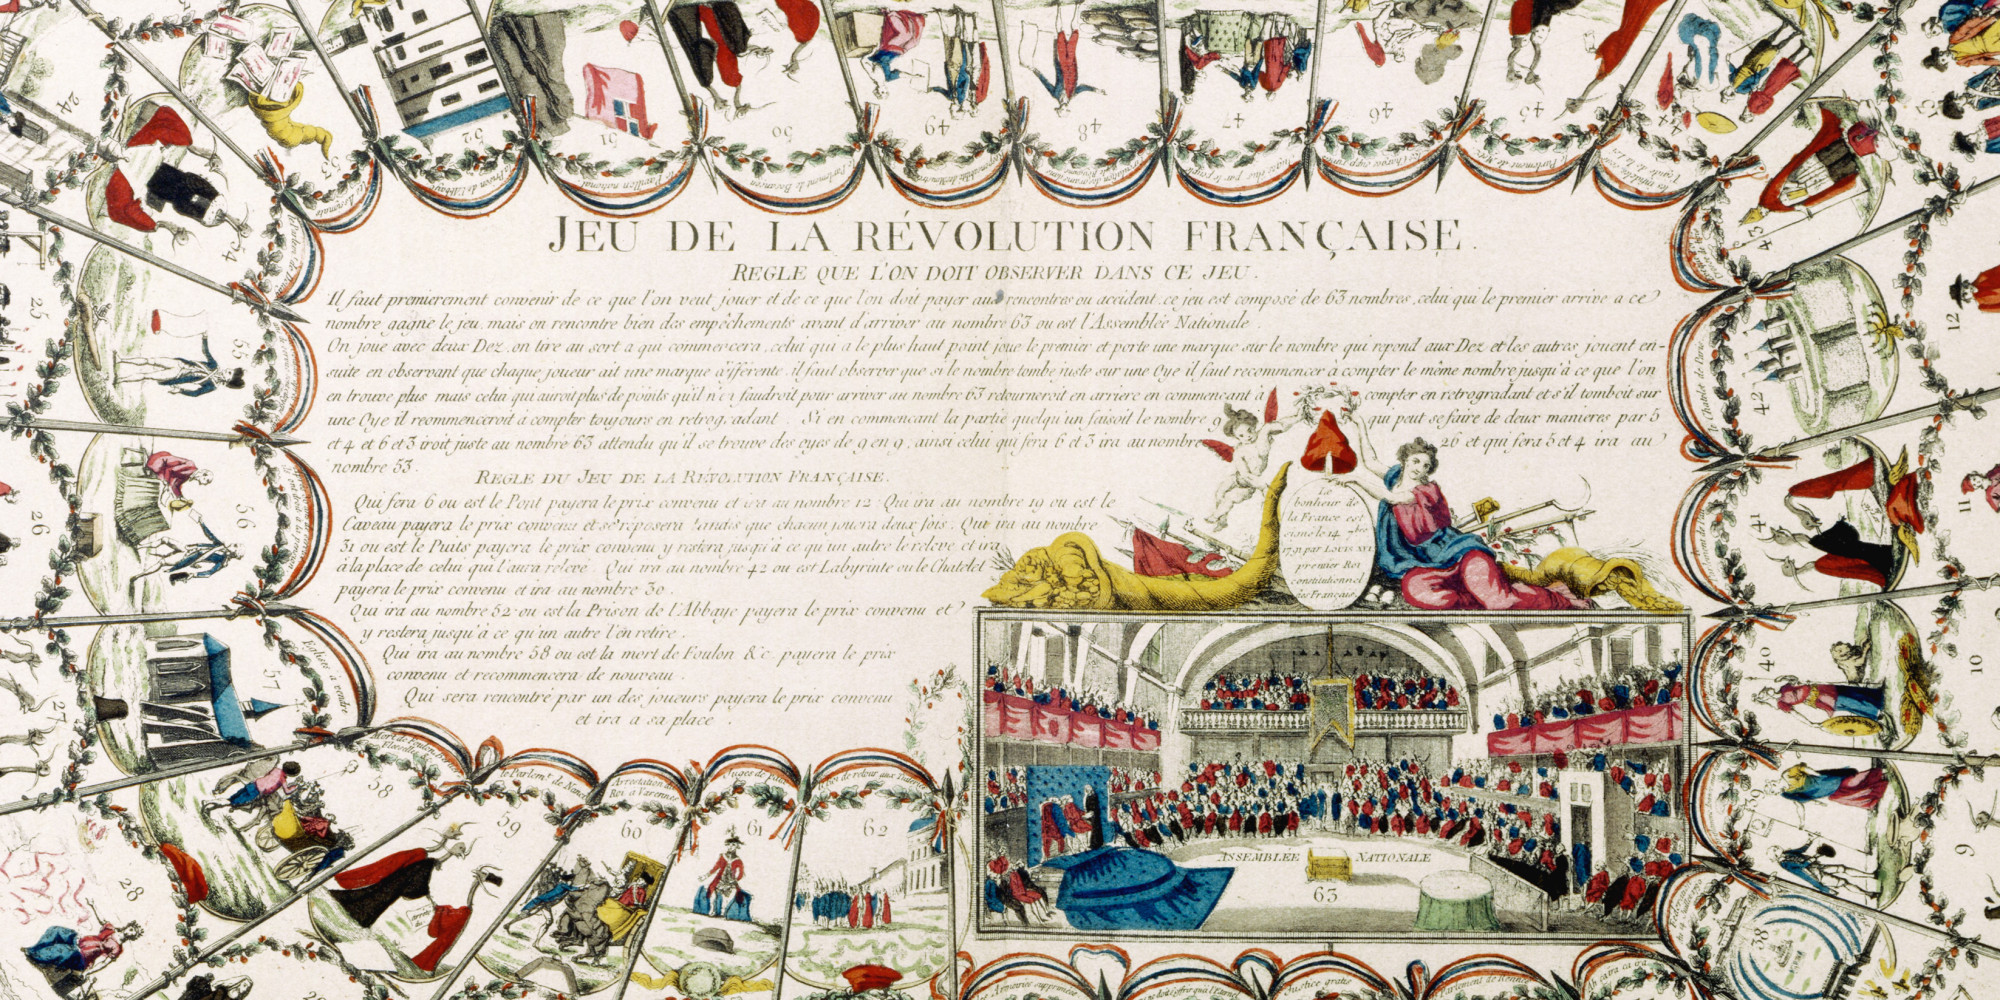 JEU DE LA RÉVOLUTION FRANÇAISE.
REGLE QUE L'ON DOIT OBSERVER DANS CE JEU.
Il faut premierement convenir de ce que l'on veut jouer et de ce que l'on doit payer aux rencontres ou accident, ce jeu est composé de 63 nombres, celui qui le premier arrive a ce
nombre gagne le jeu, mais on rencontre bien des empêchements avant d'arriver au nombre 63 ou est l'Assemblée Nationale.
On joue avec deux Dez, on tire au sort a qui commencera, celui qui a le plus haut point joue le premier et porte une marque sur le nombre qui repond aux Dez et les autres jouent en-
suite en observant que chaque joueur ait une marque différente, il faut observer que si le nombre tombe juste sur une Oye il faut recommencer à compter le même nombre jusqu'à ce que l'on
en trouve plus mais celui qui auroit plus de points qu'il n'en faudroit pour arriver au nombre 63 retourneroit en arriere en commencant à compter en retrogradant et s'il tomboit sur
une Oye il recommenceroit à compter toujours en retrogradant. Si en commencant la partie quelqu'un faisoit le nombre 9 qui peut se faire de deux manieres par 5
et 4 et 6 et 3 iroit juste au nombre 63 attendu qu'il se trouve des oyes de 9 en 9, ainsi celui qui fera 6 et 3 ira au nombre 26 et qui fera 5 et 4 ira au
nombre 53.
REGLE DU JEU DE LA RÉVOLUTION FRANÇAISE.
Qui fera 6 ou est le Pont payera le prix convenu et ira au nombre 12. Qui ira au nombre 19 ou est le
Caveau payera le prix convenu et se reposera tandis que chacun jouera deux fois. Qui ira au nombre
31 ou est le Puits payera le prix convenu y restera jusqu'à ce qu'un autre le releve et ira
à la place de celui qui l'aura relevé. Qui ira au nombre 42 ou est Labyrinte ou le Chatelet
payera le prix convenu et ira au nombre 30.
Qui ira au nombre 52 ou est la Prison de l'Abbaye payera le prix convenu et
y restera jusqu'à ce qu'un autre l'en retire.
Qui ira au nombre 58 ou est la mort de Foulon &c. payera le prix
convenu et recommencera de nouveau.
Qui sera rencontré par un des joueurs payera le prix convenu
et ira a sa place.
Le
bonheur de
la France est
signé le 14 7bre
1791 par LOUIS XVI
premier Roi
constitutionnel
des Français
ASSEMBLEE NATIONALE
63
62
61
Juges de
60
Arrestation du
Roi a Varennes
59
le Parlem.t de Nanci
58
57
Eglise à vendre
56
55
54
53
52
la Prison de l'Abbaye
51
le Pavillon national
50
Parlement de Besancon
49
48
47
46
45
44
43
42
le Chatelet de Paris
41
40
39
38
28
27
26
25
24
12
11
10
9
Justice gratis
Parlement de Rennes
Ah ca ira ca ira
les Armoiries supprimées